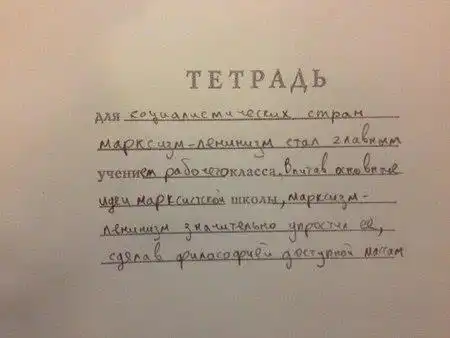 ТЕТРАДЬ
для социалистических стран
марксизм-ленинизм стал главным
учением рабочего класса. Впитав основные
идеи марксистской школы, марксизм-
ленинизм значительно упростил её,
сделав философией доступной массам